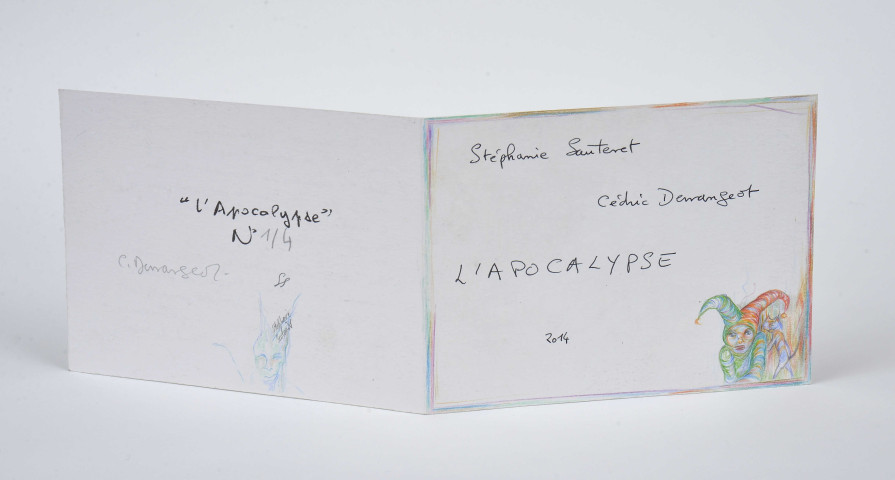 "L'Apocalypse"
N° 1/4
C. Demangeot
SS
Stéphanie Sautenet
Cédric Demangeot
L'APOCALYPSE
2014